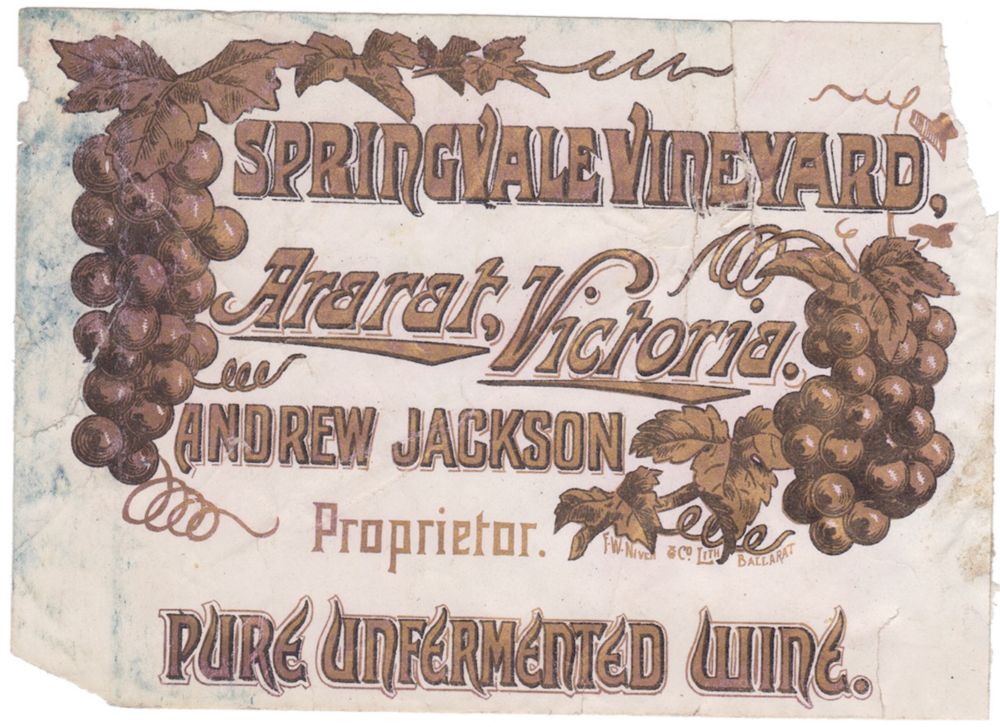 SPRINGVALE VINEYARD,
Ararat, Victoria.
ANDREW JACKSON
Proprietor.
F.W. NIVEN & CO LITH BALLARAT
PURE UNFERMENTED WINE.